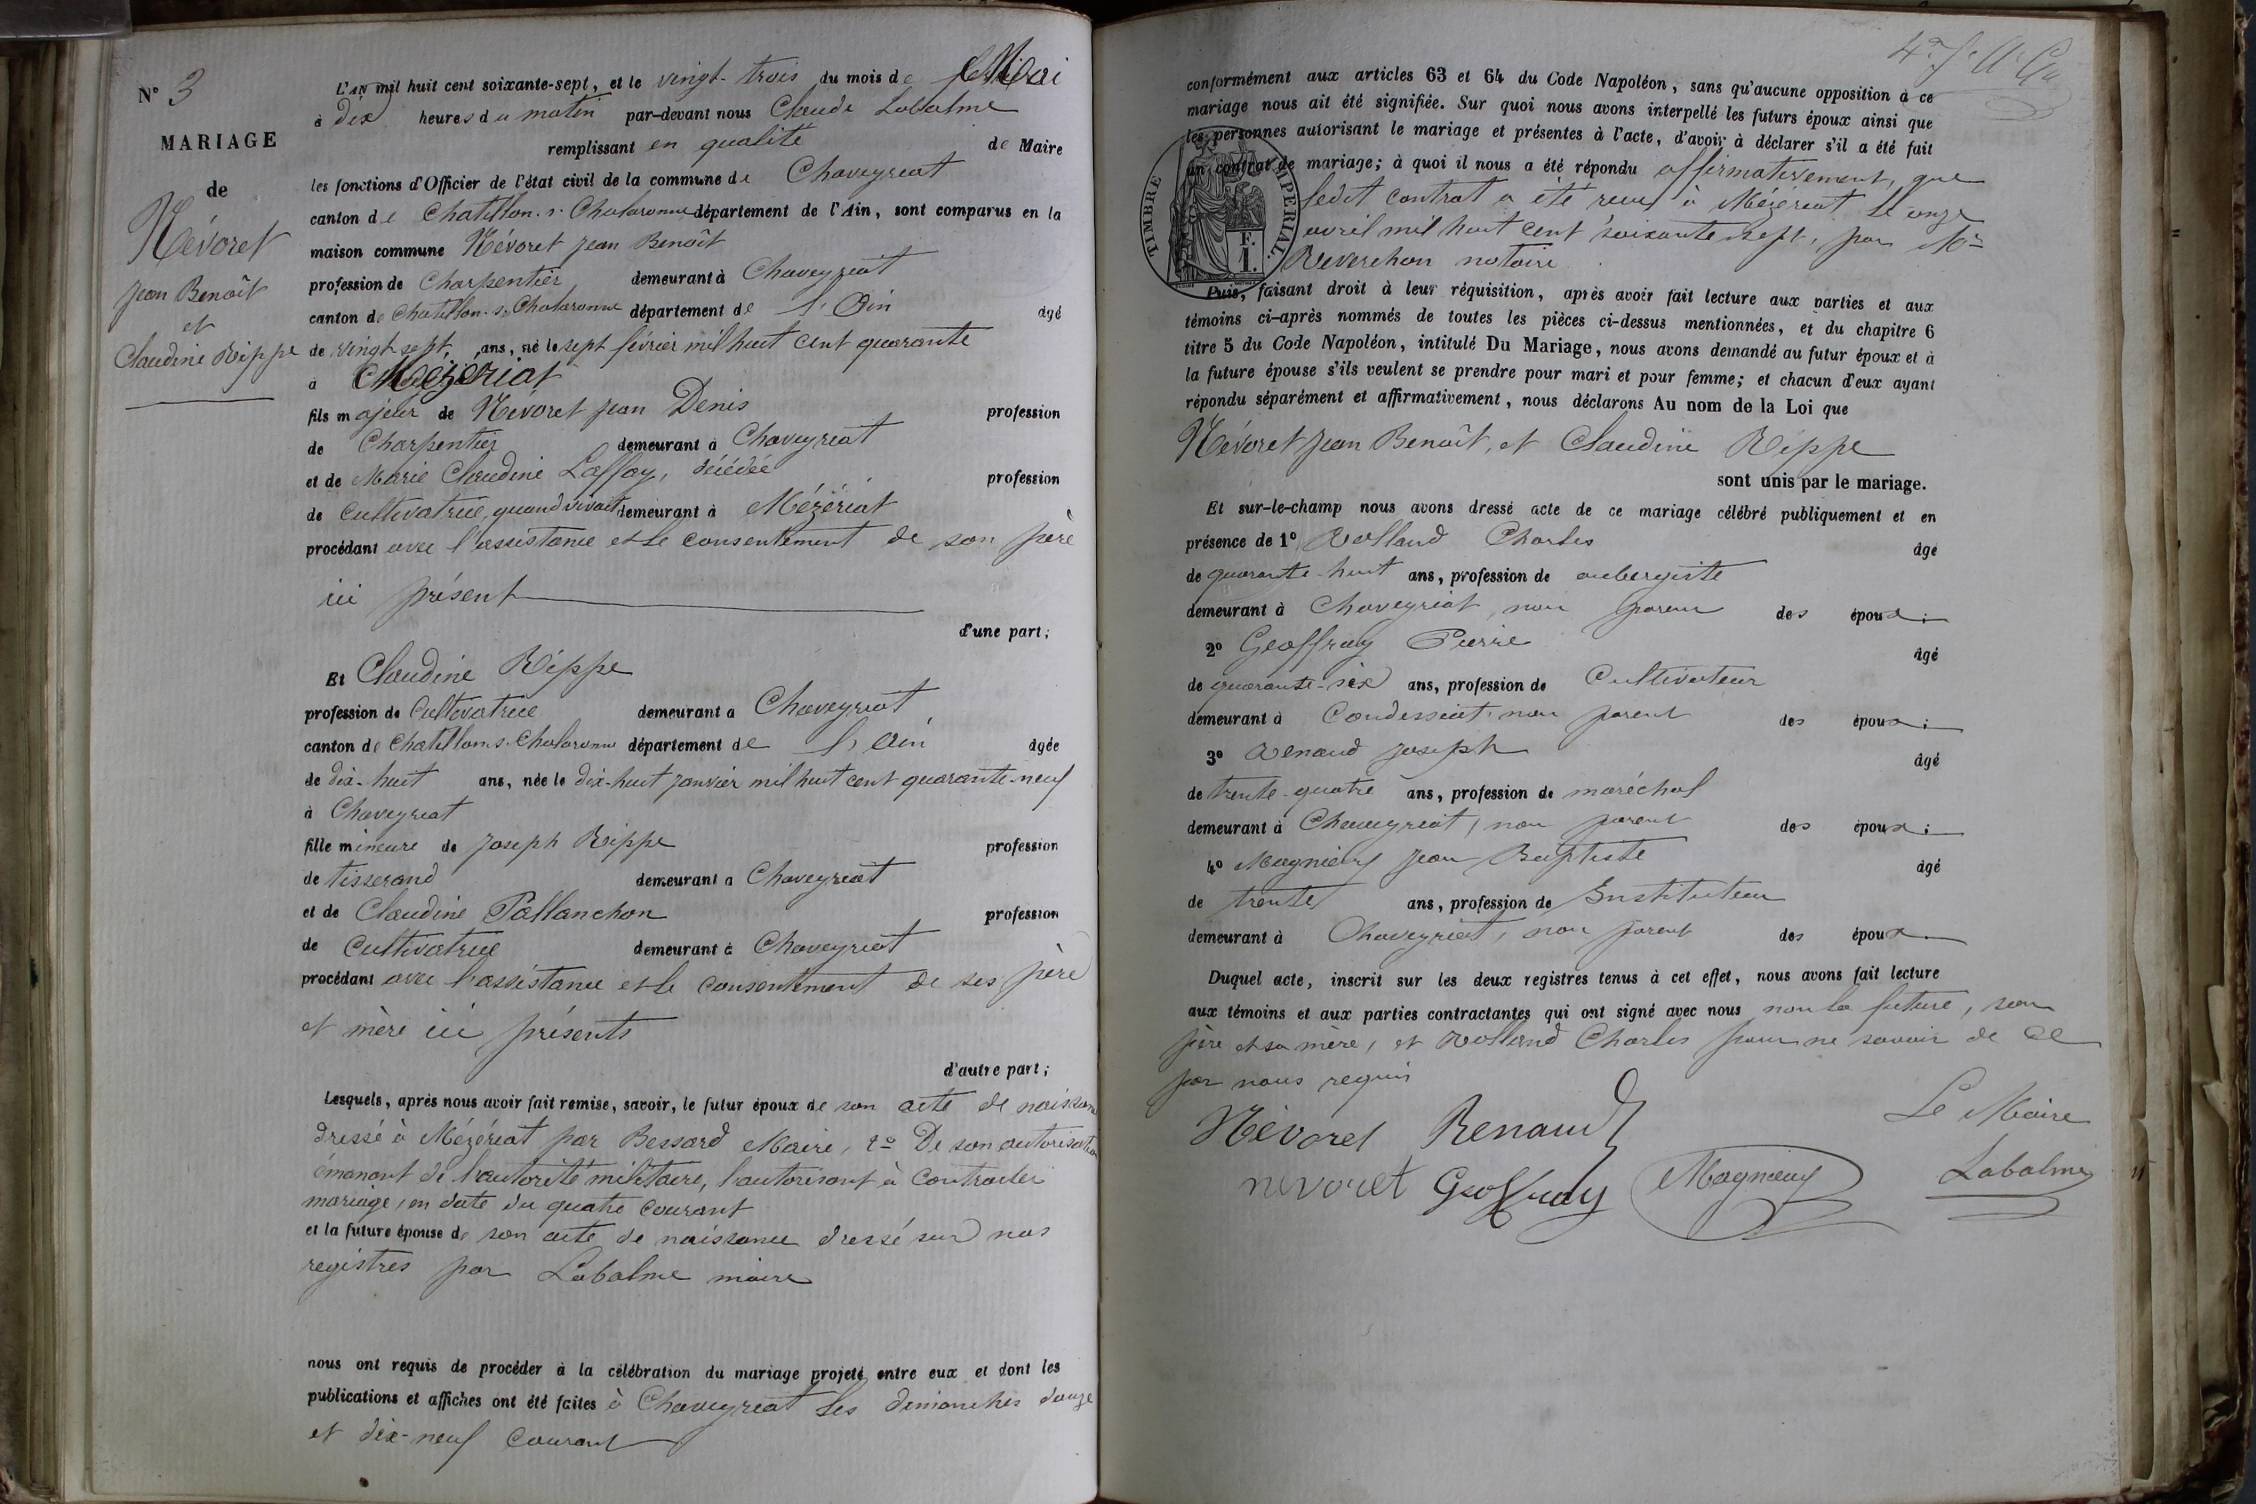 N° 3
MARIAGE
de
Névoret
Jean Benoît
et
Claudine Rippe
L'AN mil huit cent soixante-sept, et le vingt-trois du mois de Mai
à dix heures du matin par-devant nous Claude Labalme
remplissant en qualité de Maire
les fonctions d'Officier de l'état civil de la commune de Chaveyriat
canton de Chatillon-s-Chalaronne département de l'Ain, sont comparus en la
maison commune Névoret Jean Benoît
profession de Charpentier demeurant à Chaveyriat
canton de Chatillon-s-Chalaronne département de l'Ain âgé
de vingt-sept ans, né le sept février mil huit cent quarante
à Mézériat
fils majeur de Névoret Jean Denis profession
de Charpentier demeurant à Chaveyriat
et de Marie Claudine Laffay, décédée profession
de Cultivatrice, quand vivait demeurant à Mézériat
procédant avec l'assistance et le consentement de son père
ici présent
d'une part;
Et Claudine Rippe
profession de Cultivatrice demeurant à Chaveyriat
canton de Chatillon-s-Chalaronne département de l'Ain âgée
de dix-huit ans, née le dix-huit janvier mil huit cent quarante-neuf
à Chaveyriat
fille mineure de Joseph Rippe profession
de tisserand demeurant à Chaveyriat
et de Claudine Pallanchon profession
de Cultivatrice demeurant à Chaveyriat
procédant avec l'assistance et le consentement de ses père
et mère ici présents
d'autre part;
Lesquels, après nous avoir fait remise, savoir, le futur époux de son acte de naissance
dressé à Mézériat par Bessard Maire, 2° De son autorisation
émanant de l'autorité militaire, l'autorisant à contracter
mariage, en date du quatre courant
et la future épouse de son acte de naissance dressé sur nos
registres par Labalme maire
nous ont requis de procéder à la célébration du mariage projeté entre eux et dont les
publications et affiches ont été faites à Chaveyriat les dimanches douze
et dix-neuf courant
conformément aux articles 63 et 64 du Code Napoléon, sans qu'aucune opposition à ce
mariage nous ait été signifiée. Sur quoi nous avons interpellé les futurs époux ainsi que
les personnes autorisant le mariage et présentes à l'acte, d'avoir à déclarer s'il a été fait
un contrat de mariage; à quoi il nous a été répondu affirmativement, que
ledit contrat a été reçu à Mézériat le onze
avril mil huit cent soixante sept, par Me
Reverchon notaire
TIMBRE IMPERIAL
F.
1.
Puis, faisant droit à leur réquisition, après avoir fait lecture aux parties et aux
témoins ci-après nommés de toutes les pièces ci-dessus mentionnées, et du chapitre 6
titre 5 du Code Napoléon, intitulé Du Mariage, nous avons demandé au futur époux et à
la future épouse s'ils veulent se prendre pour mari et pour femme; et chacun d'eux ayant
répondu séparément et affirmativement, nous déclarons Au nom de la Loi que
Névoret Jean Benoît, et Claudine Rippe
sont unis par le mariage.
Et sur-le-champ nous avons dressé acte de ce mariage célébré publiquement et en
présence de 1° Rolland Charles âgé
de quarante-huit ans, profession de aubergiste
demeurant à Chaveyriat, non parent des époux;
2° Geoffray Pierre âgé
de quarante-six ans, profession de Cultivateur
demeurant à Condeissiat, non parent des époux;
3° Renaud Joseph âgé
de trente-quatre ans, profession de maréchal
demeurant à Chaveyriat, non parent des époux;
4° Magnieny Jean Baptiste âgé
de trente ans, profession de Instituteur
demeurant à Chaveyriat, non parent des époux
Duquel acte, inscrit sur les deux registres tenus à cet effet, nous avons fait lecture
aux témoins et aux parties contractantes qui ont signé avec nous non la future, son
père et sa mère, et Rolland Charles pour ne savoir de ce
par nous requis
Le Maire
Névoret Renaud
nevoret Geoffray Magnieny Labalme